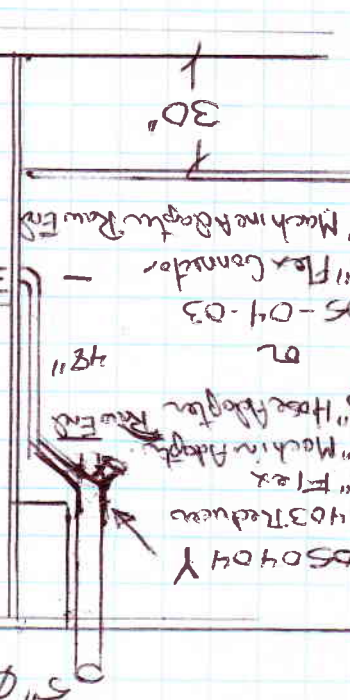 5"Φ
50404 Y
403 Reducer
" Flex
" Machin Adapt. Raw End
" Hose Adapter
48"
or
5-04-03
" Flex Connector -
" Machine Adapter Raw End
30"